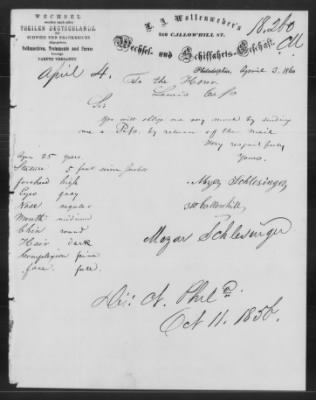 WECHSEL
THEILEN DEUTSCHLANDS,
SCHWEIZ UND FRANKREICHS
Vollmachten, Testamente und Pässe
PÄSSE VERSORGT.
L. A. Wollenweber's
CALLOWHILL ST.
Wechsel- und Schiffahrts-Geschäft.
18,260
Philadelphia, April 3. 1860
April 4.
To the Honor.
Lewis Cass
Sir
You will oblige me very much by sending
me a Pass. by return off the mail
Very respectfully
Yours.
Ages 25 years.
Stature 5 feet seven Inches
forehead high
Eyes gray
Nose regular
Mouth medium
Chin round
Hair dark
Complexion fair
face full.
Mayer Schlesinger
Callowhill,
Mayer Schlesinger
Dis: Ct. Phila
Oct 11. 1856.